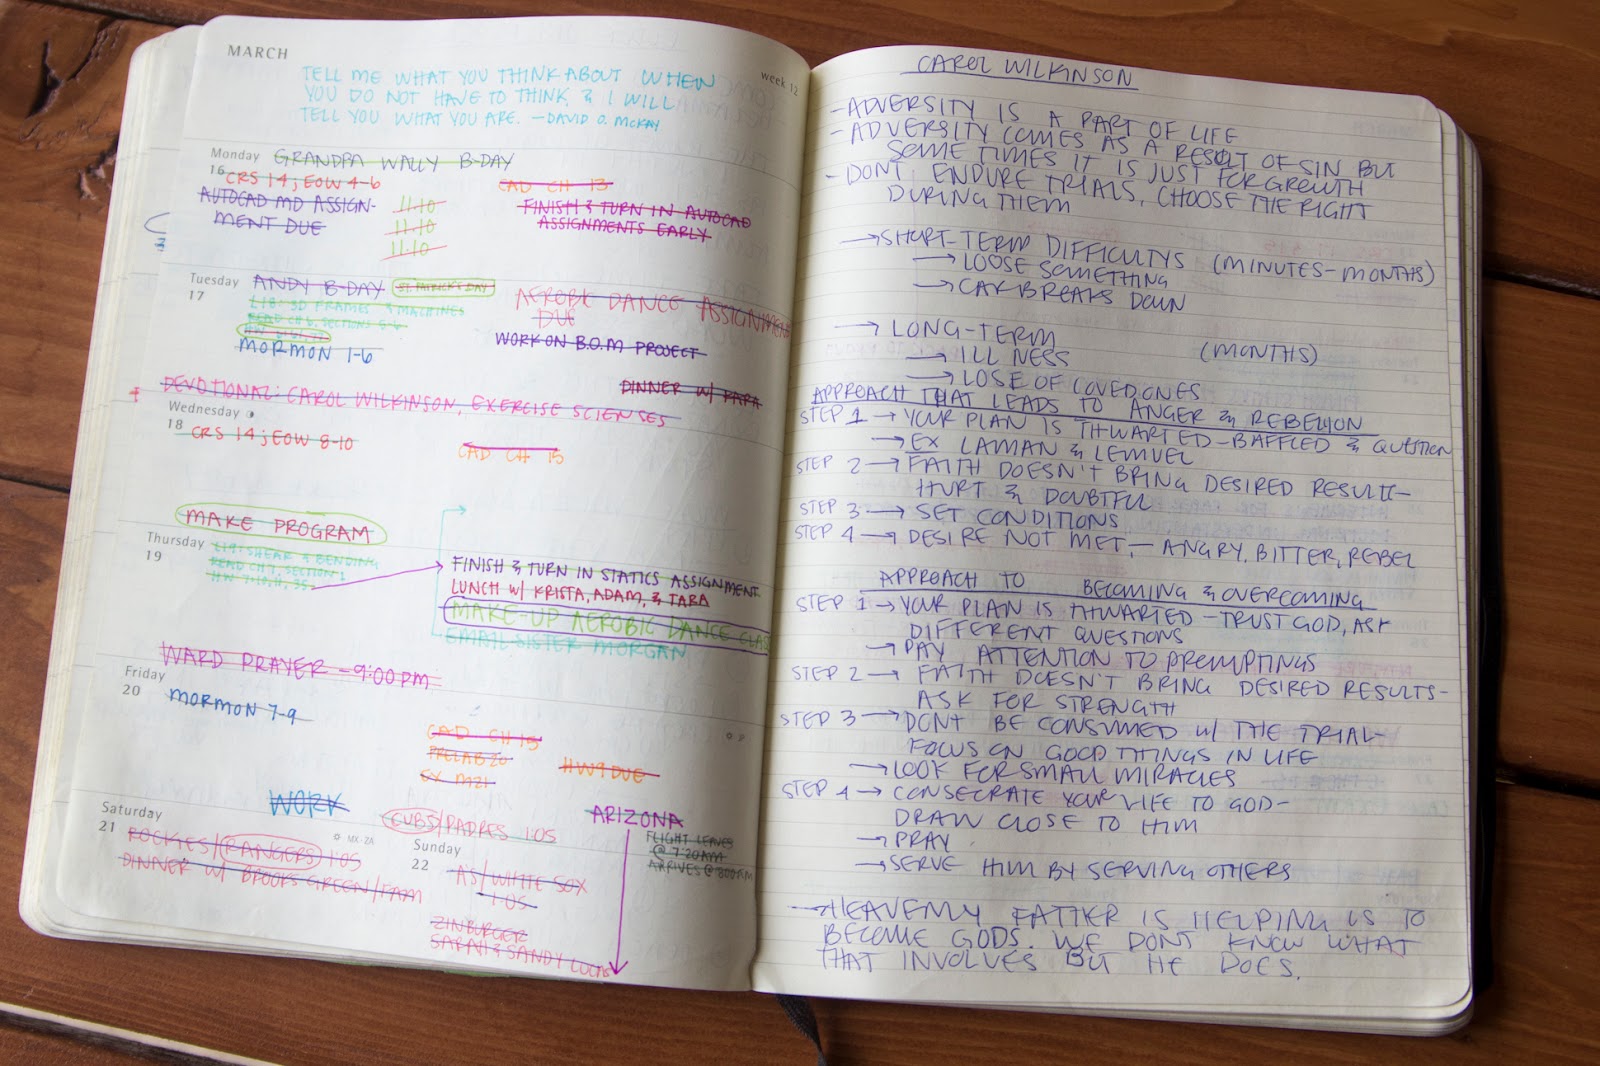 MARCH
week 12
TELL ME WHAT YOU THINK ABOUT WHEN
YOU DO NOT HAVE TO THINK, & I WILL
TELL YOU WHAT YOU ARE. -DAVID O. MCKAY
Monday GRANDPA WALLY B-DAY
16
CRS 14; EOW 4-6
AUTOCAD MD ASSIGN-
MENT DUE
11:10
11:10
11:10
CAD CH 13
FINISH & TURN IN AUTOCAD
ASSIGNMENTS EARLY
Tuesday ANDY B-DAY ST. PATRICK'S DAY
17
L18: 3D FRAMES & MACHINES
READ CH 6, SECTIONS 6-6
MORMON 1-6
AEROBIC DANCE ASSIGNMENT
DUE
WORK ON B.O.M PROJECT
DINNER W/ PAPA
DEVOTIONAL: CAROL WILKINSON, EXERCISE SCIENSES
Wednesday
18
CRS 14; EOW 8-10
CAD CH 15
MAKE PROGRAM
Thursday
19
L19: SHEAR & BENDING
READ CH 7, SECTION 1
FINISH & TURN IN STATICS ASSIGNMENT
LUNCH W/ KRISTA, ADAM, & TARA
MAKE-UP AEROBIC DANCE CLASS
EMAIL SISTER MORGAN
WARD PRAYER - 9:00 PM
Friday
20
MORMON 7-9
CAD CH 15
PRELAB 20
EX M21
HW9 DUE
WORK
Saturday
21
ROCKIES/RANGERS 1:05
DINNER W/ BROOKS GREEN/FAM
MX-ZA
CUBS/PADRES 1:05
Sunday
22
A'S/WHITE SOX
1:05
ZINBURGER
SARAH & SANDY LUCAS
ARIZONA
FLIGHT LEAVES
@ 7:20AM
ARRIVES @ 8:00AM
CAROL WILKINSON
-ADVERSITY IS A PART OF LIFE
-ADVERSITY COMES AS A RESULT OF SIN BUT
SOME TIMES IT IS JUST FOR GROWTH
-DONT ENDURE TRIALS, CHOOSE THE RIGHT
DURING THEM
→SHORT-TERM DIFFICULTYS (MINUTES-MONTHS)
→LOOSE SOMETHING
→CAR BREAKS DOWN
→LONG-TERM
→ILLNESS (MONTHS)
→LOSE OF LOVED ONES
APPROACH THAT LEADS TO ANGER & REBELLION
STEP 1→YOUR PLAN IS THWARTED-BAFFLED & QUESTION
→EX LAMAN & LEMUEL
STEP 2→FAITH DOESN'T BRING DESIRED RESULTS-
HURT & DOUBTFUL
STEP 3→SET CONDITIONS
STEP 4→DESIRE NOT MET,-ANGRY, BITTER, REBEL
APPROACH TO BECOMING & OVERCOMING
STEP 1→YOUR PLAN IS THWARTED-TRUST GOD, ASK
DIFFERENT QUESTIONS
→PAY ATTENTION TO PROMPTINGS
STEP 2→FAITH DOESN'T BRING DESIRED RESULTS-
ASK FOR STRENGTH
STEP 3→DONT BE CONSUMED W/ THE TRIAL-
FOCUS ON GOOD THINGS IN LIFE
→LOOK FOR SMALL MIRACLES
STEP 4→CONSECRATE YOUR LIFE TO GOD-
DRAW CLOSE TO HIM
→PRAY
→SERVE HIM BY SERVING OTHERS
→HEAVENLY FATHER IS HELPING US TO
BECOME GODS. WE DONT KNOW WHAT
THAT INVOLVES BUT HE DOES.